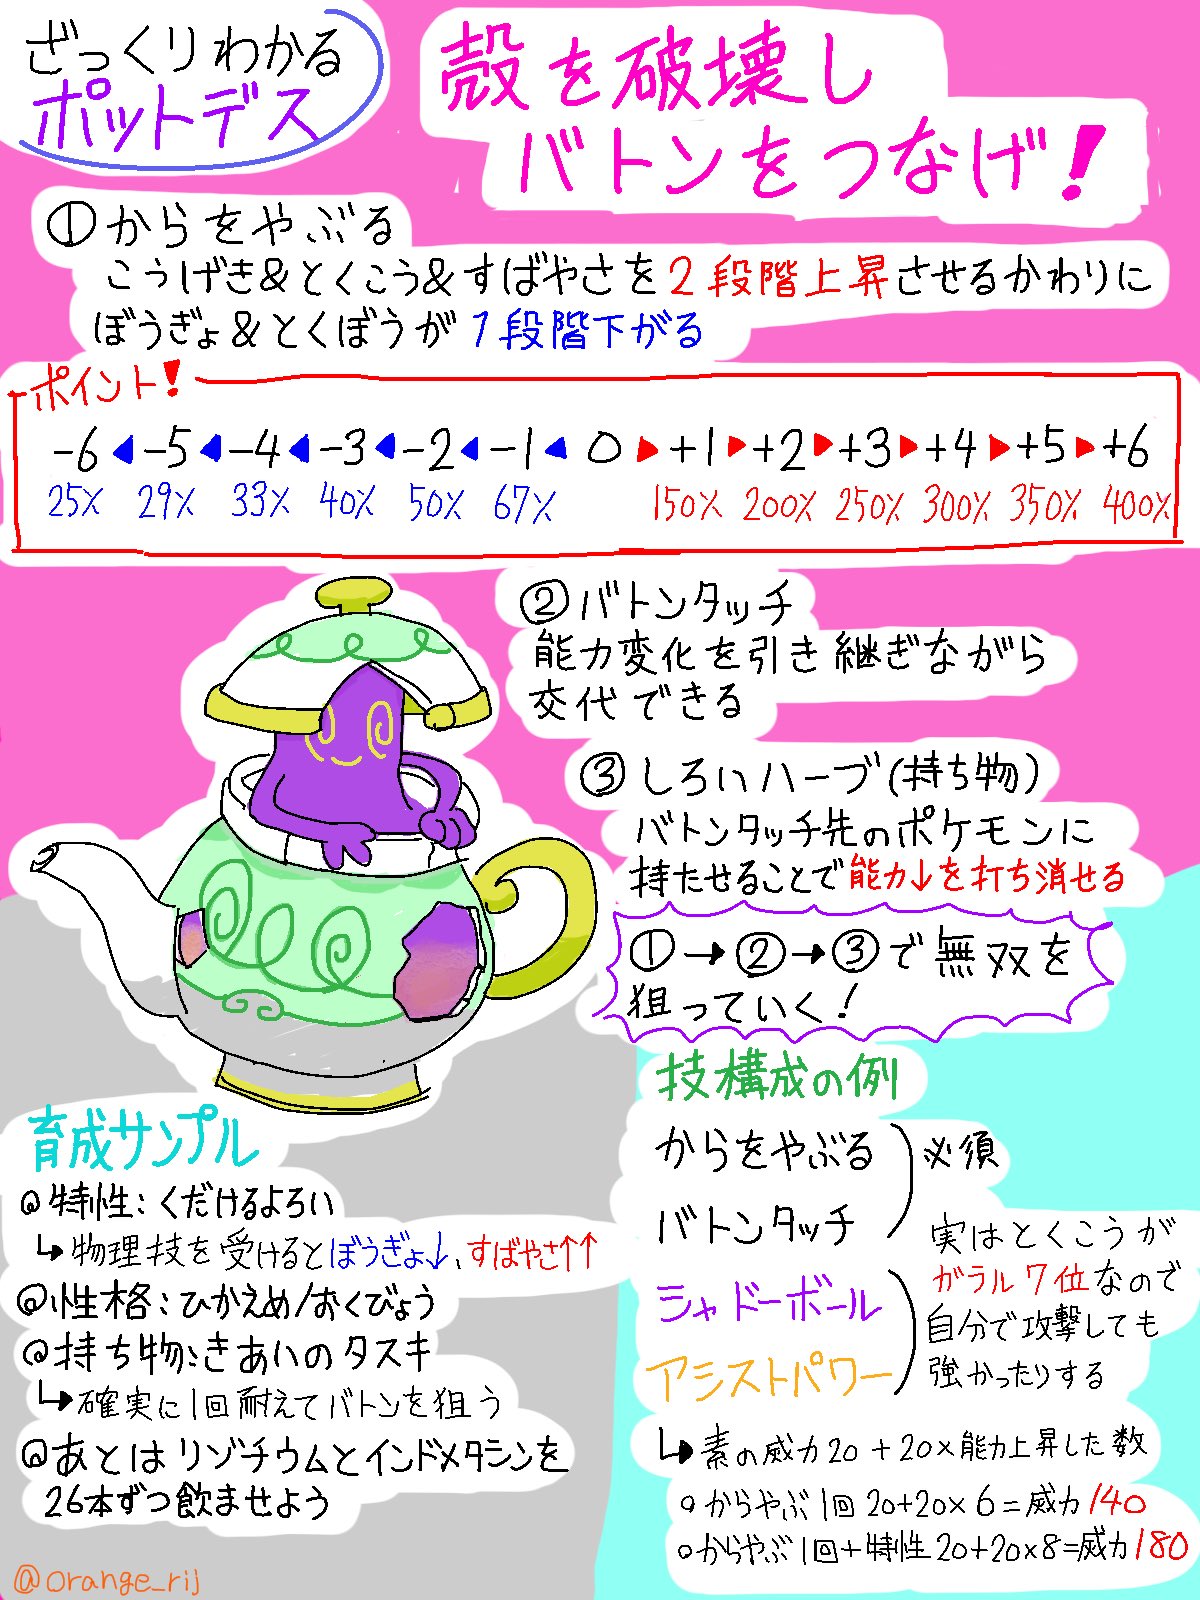 ざっくりわかる
ポットデス
殻を破壊し
バトンをつなげ!
①からをやぶる
こうげき&とくこう&すばやさを2段階上昇させるかわりに
ぼうぎょ&とくぼうが1段階下がる
ポイント!
-6◀-5◀-4◀-3◀-2◀-1◀ 0 ▶+1▶+2▶+3▶+4▶+5▶+6
25% 29% 33% 40% 50% 67% 150% 200% 250% 300% 350% 400%
②バトンタッチ
能力変化を引き継ぎながら
交代できる
③しろいハーブ(持ち物)
バトンタッチ先のポケモンに
持たせることで能力↓を打ち消せる
①→②→③で無双を
狙っていく!
育成サンプル
◎特性:くだけるよろい
↳物理技を受けるとぼうぎょ↓、すばやさ↑↑
◎性格:ひかえめ/おくびょう
◎持ち物:きあいのタスキ
↳確実に1回耐えてバトンを狙う
◎あとはリゾチウムとインドメタシンを
26本ずつ飲ませよう
@orange_rij
技構成の例
からをやぶる
バトンタッチ
必須
シャドーボール
アシストパワー
実はとくこうが
ガラル7位なので
自分で攻撃しても
強かったりする
↳素の威力20+20×能力上昇した数
○からやぶ1回20+20×6=威力140
○からやぶ1回+特性20+20×8=威力180